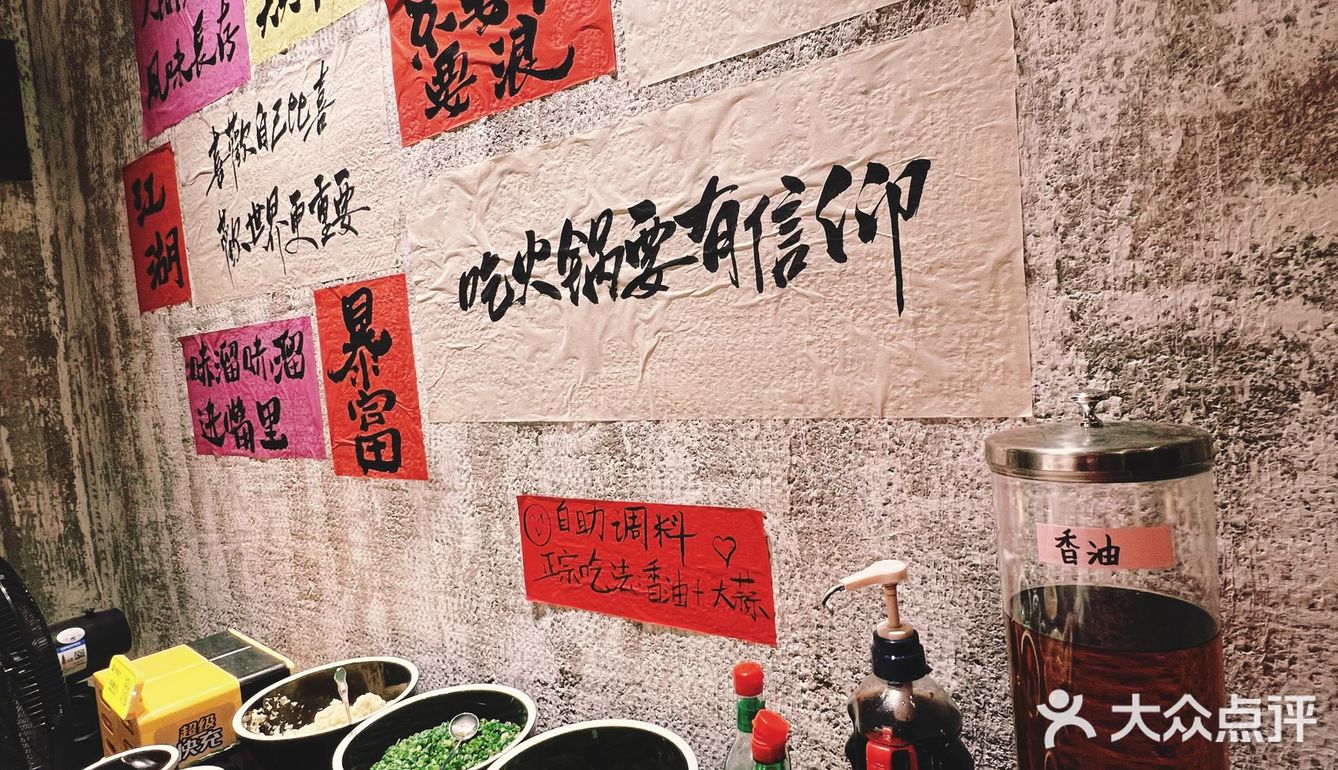 風味長存
要浪
喜歡自己比喜
歡世界更重要
江湖
吃火锅要有信仰
暴富
哧溜哧溜
进嘴里
自助调料
正宗吃法香油+大蒜
香油
超级
快充
大众点评